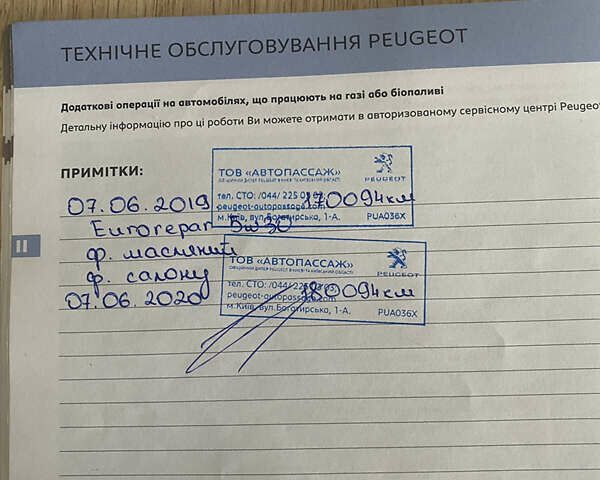 ТЕХНІЧНЕ ОБСЛУГОВУВАННЯ PEUGEOT
Додаткові операції на автомобілях, що працюють на газі або біопаливі
Детальну інформацію про ці роботи Ви можете отримати в авторизованому сервісному центрі Peugeot
ПРИМІТКИ:
ТОВ «АВТОПАССАЖ»
PEUGEOT
тел. СТО: /044/ 225 03 03
peugeot-autopassage.com
м.Київ, вул.Богатирська, 1-А.
PUA036X
07.06.2019 170094км
Eurorepar 5w30
ф. масляний
ф. салону
II
ТОВ «АВТОПАССАЖ»
PEUGEOT
тел. СТО: /044/ 225 03 03
peugeot-autopassage.com
м.Київ, вул.Богатирська, 1-А.
PUA036X
07.06.2020 180094км